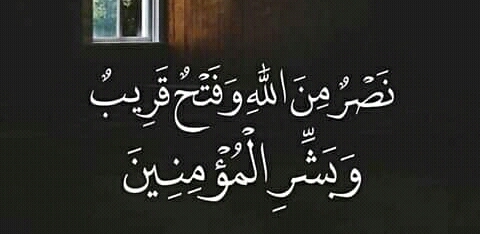 نَصْرٌ مِنَ اللهِ وَفَتْحٌ قَرِيبٌ
وَبَشِّرِ الْمُؤْمِنِينَ